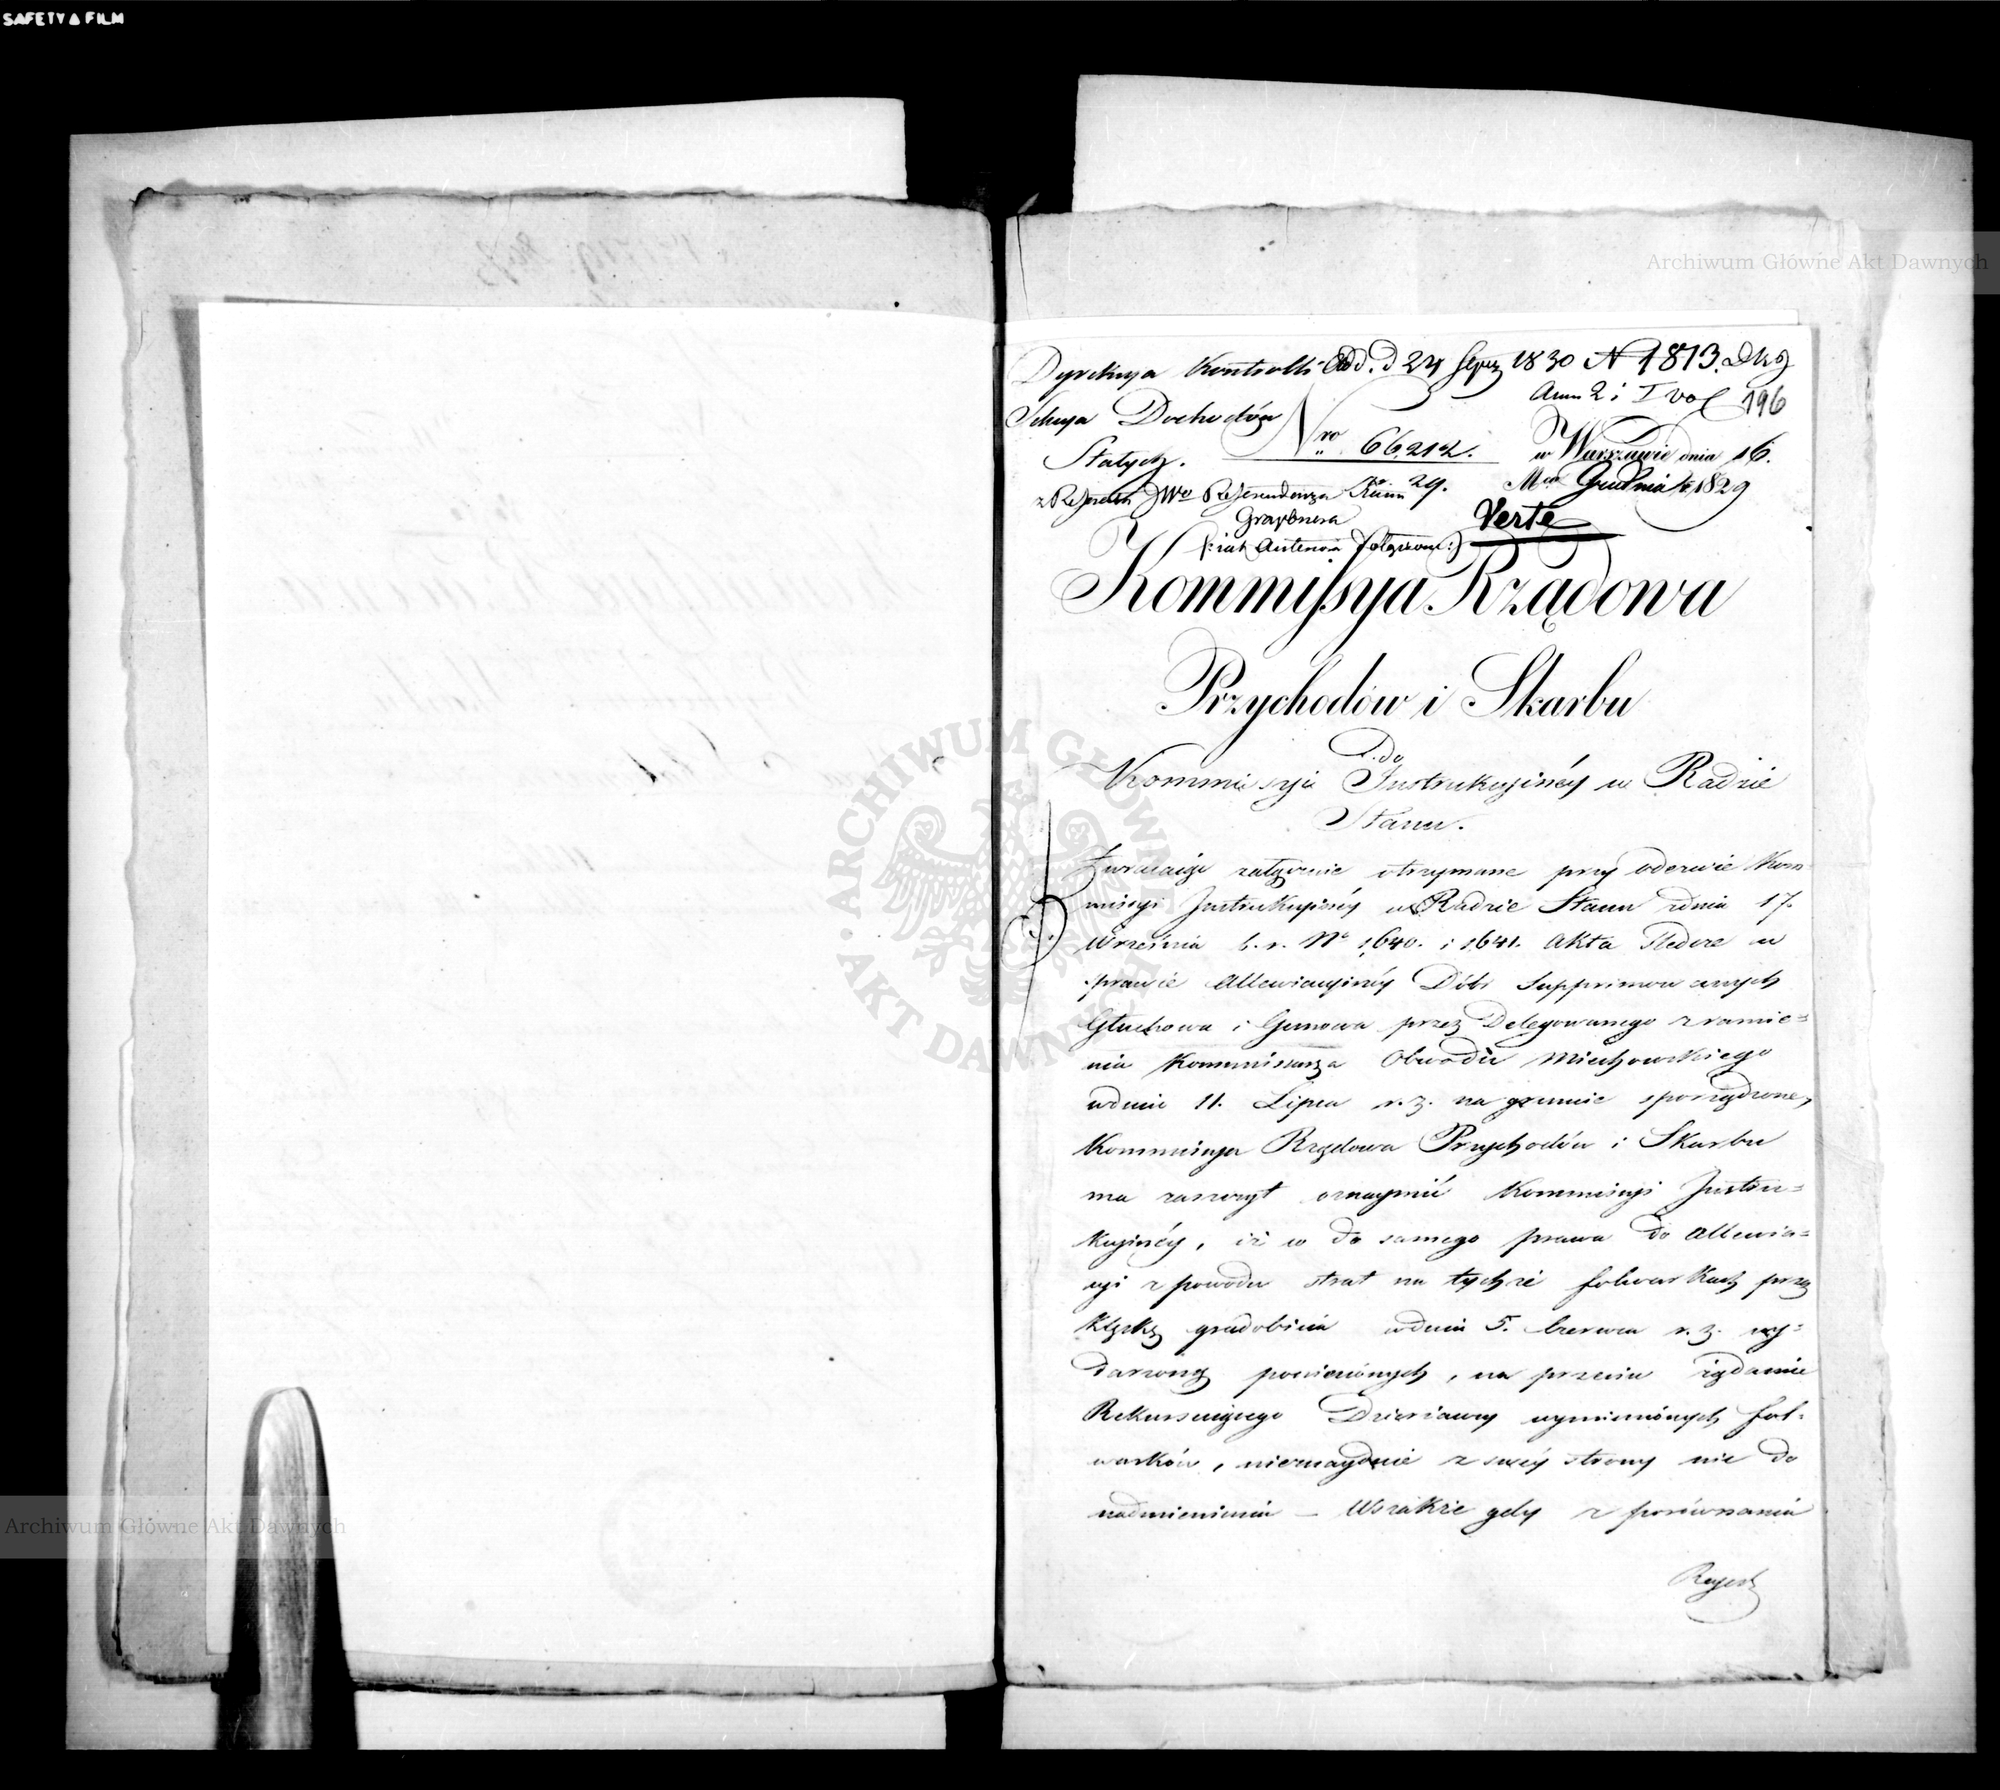 SAFETY FILM
Archiwum Główne Akt Dawnych
Dyrekcya Kontrolli Add. d 24 1830 N 1813.
Sekcya Dochodów Ann 2 i I vol 196
Stałych. Nro 66,212. w Warszawie dnia 16.
29. Mca Grudnia 1829
Verte
Kommissya Rządowa
Przychodów i Skarbu
do
Kommissyi Instrukcyinéy w Radzie
Stanu.
Zwracaiąc załącznie otrzymane przy odezwie Kom-
missyi Instrukcyinéy w Radzie Stanu z dnia 17.
Września b. r. No 1640. i 1641. Akta Śledcze w
sprawie Allewiacyinéy Dóbr Supprimowanych
Głuchowa i Gunowa przez Delegowanego z ramie=
nia Kommissarza Obwodu Miechowskiego
w dniu 11. Lipca r. z. na gruncie sporządzone,
Kommissya Rządowa Przychodów i Skarbu
ma zaszczyt oznaymić Kommissyi Instru=
kcyinéy, iż co do samego prawa do Allewia=
cyi z powodu strat na tychże folwarkach przez
klęskę gradobicia w dniu 5. Czerwca r. z. wy=
darzoną poniesionych, na przeciw żądanie
Rekursuiącego Dzierżawcy wymienionych fol=
warków, nieznayduie z swéy strony nic do
nadmienienia – Wszakże gdy z porównania
Archiwum Główne Akt Dawnych
ARCHIWUM GŁÓWNE AKT DAWNYCH